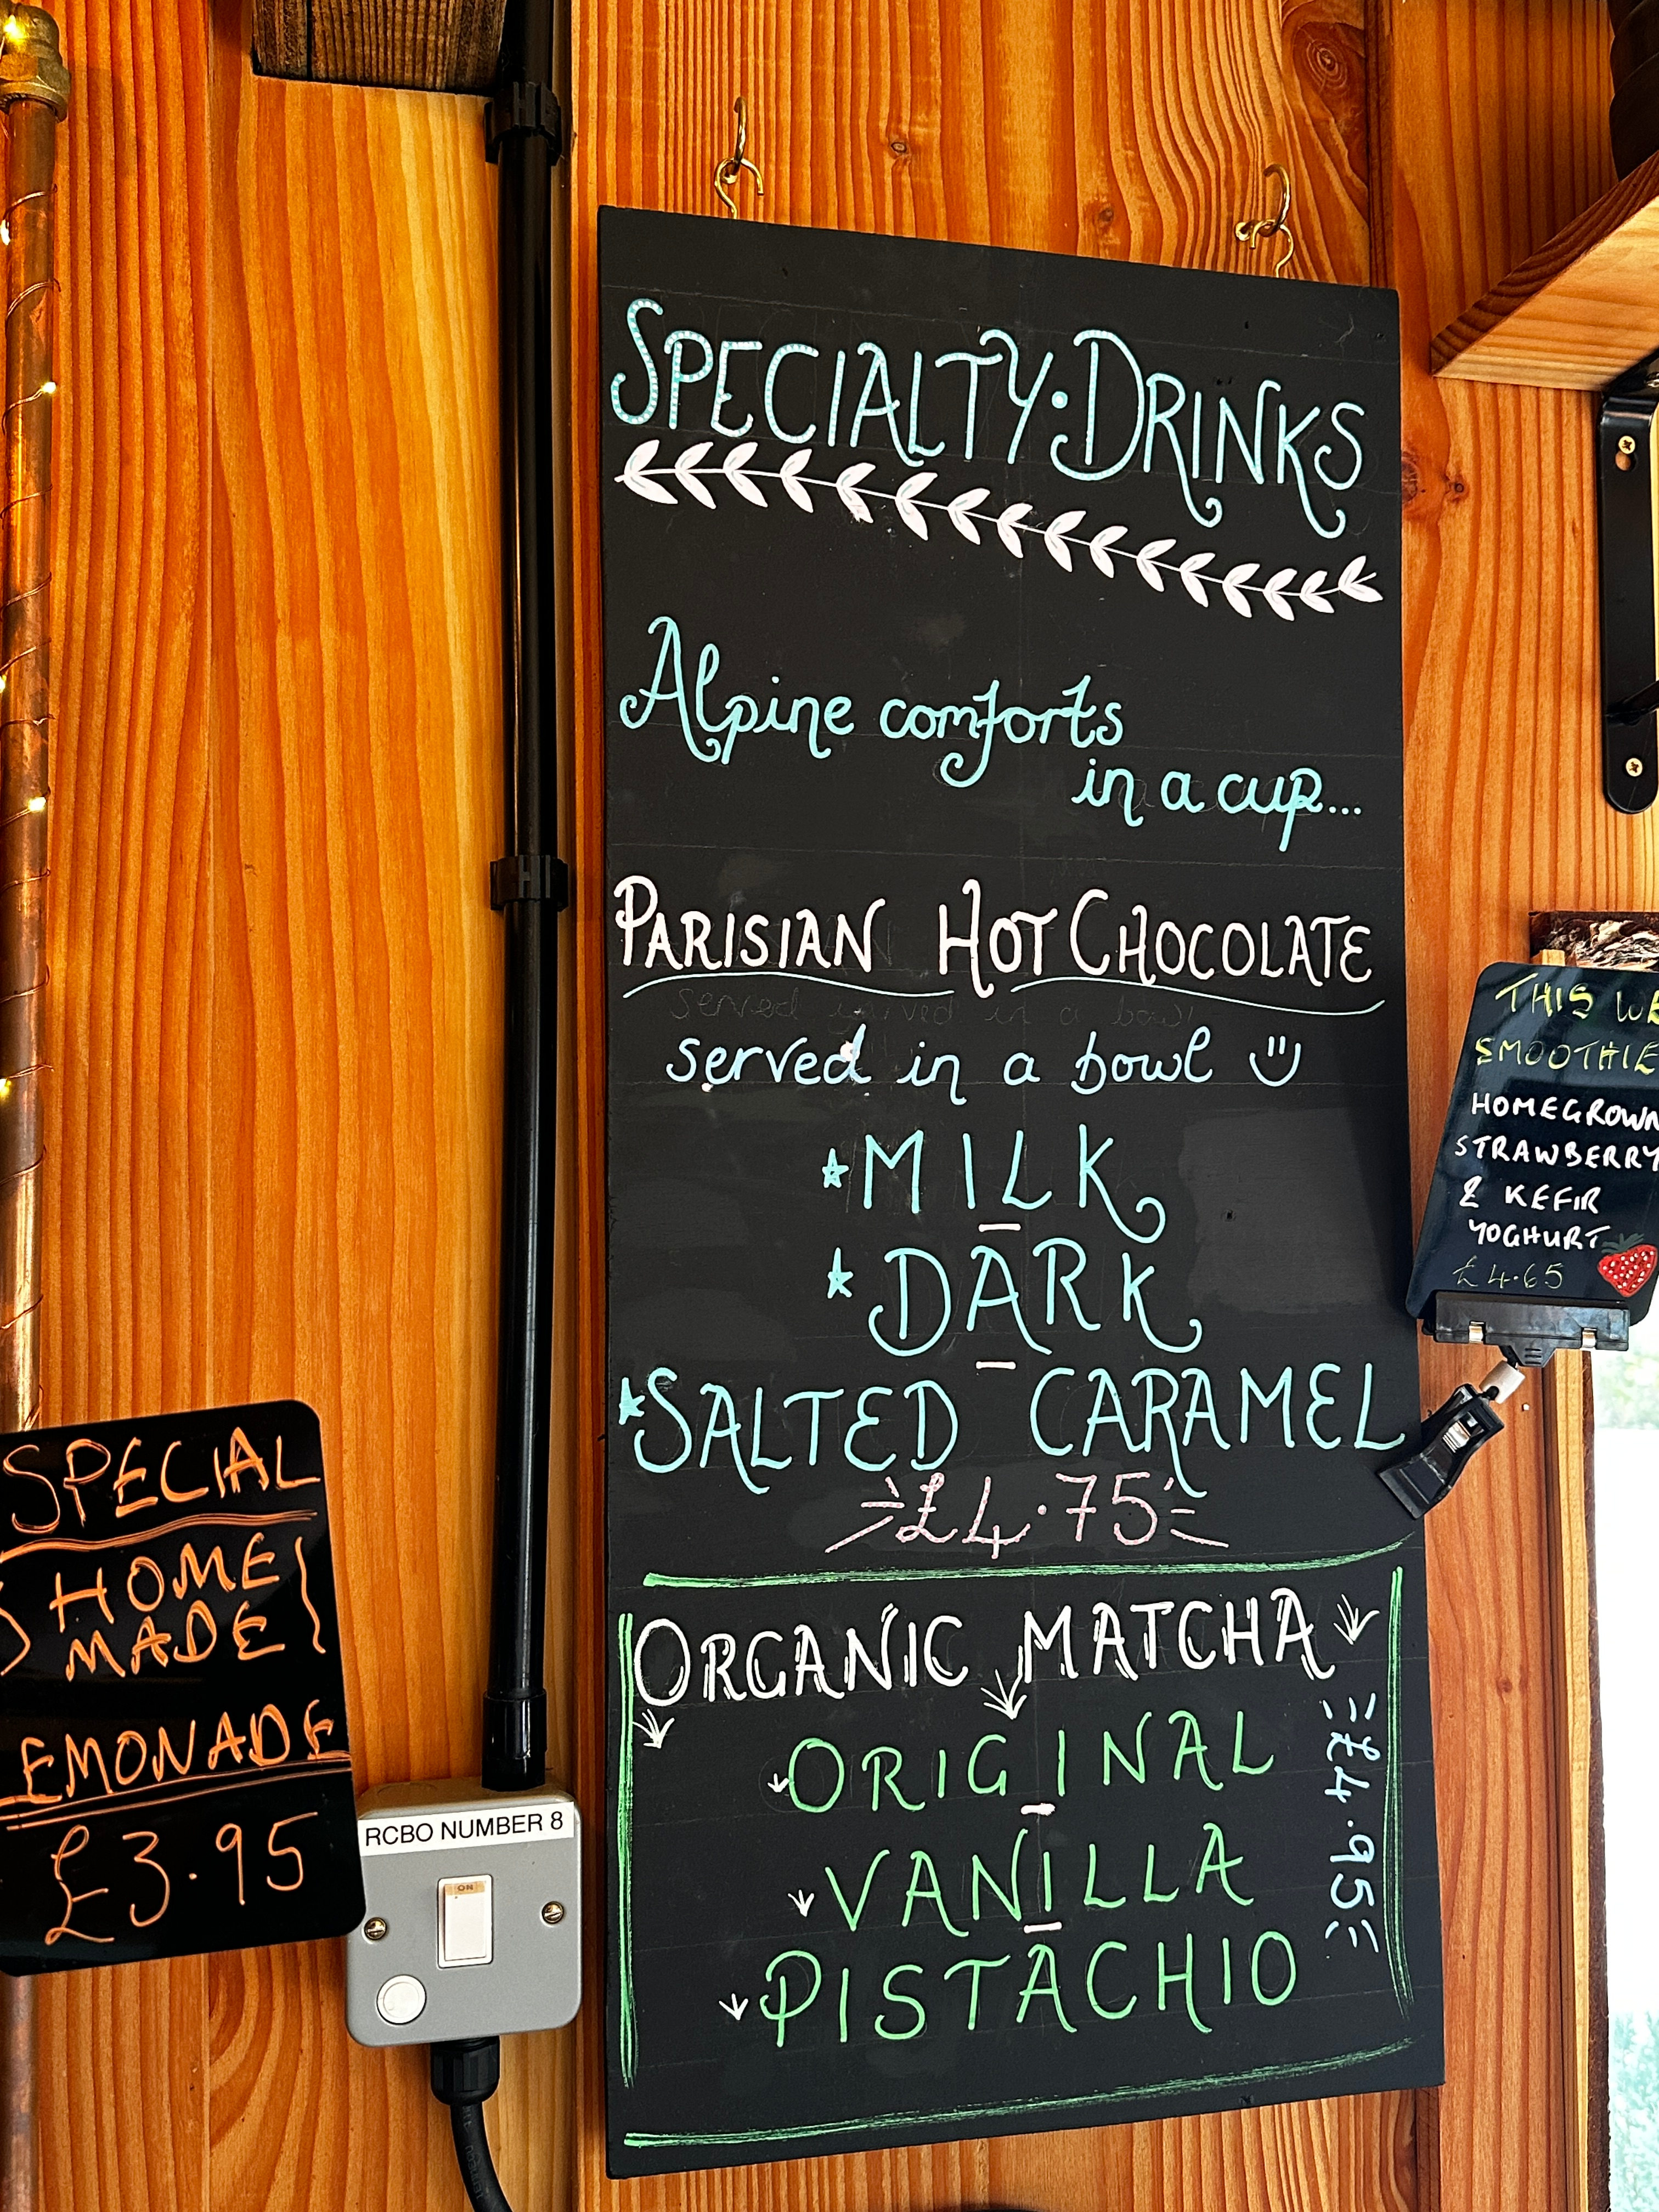 SPECIALTY · DRINKS
Alpine comforts
in a cup...
PARISIAN HOT CHOCOLATE
served in a bowl
MILK
DARK
SALTED CARAMEL
£4.75
ORGANIC MATCHA
ORIGINAL
VANILLA
PISTACHIO
£4.95
SPECIAL
HOME
MADE
LEMONADE
£3.95
RCBO NUMBER 8
ON
THIS WE
SMOOTHIE
HOMEGROWN
STRAWBERRY
& KEFIR
YOGHURT
£4.65